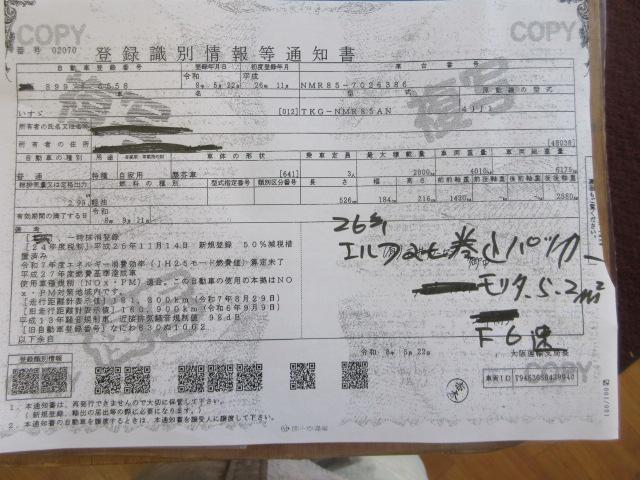 COPY COPY
番号 02070 登録識別情報等通知書
自動車登録番号 登録年月日 初度登録年月 車台番号
令和 平成
8年 5月22日 26年 11月 NMR85-7026386
車名 型式 原動機の型式
いすゞ [012] TKG-NMR85AN 4JJ1
所有者の氏名又は名称
所有者の住所 [48038]
自動車の種別 用途 自家用・事業用の別 車体の形状 乗車定員 最大積載量 車両重量 車両総重量
普通 特種 自家用 塵芥車 [641] 3人 2000kg 4010kg 6175kg
総排気量又は定格出力 燃料の種類 型式指定番号 類別区分番号 長さ 幅 高さ 前前軸重 前後軸重 後前軸重 後後軸重
2.99 軽油 526cm 184cm 216cm 1430kg 2580kg
有効期間の満了する日
令和
8年 9月21日
備考
一時抹消登録
[24年度税制]平成26年11月14日 新規登録 50%減税措
置済み
令和7年度エネルギー消費効率(JH25モード燃費値)算定未了
平成27年度燃費基準達成車
使用車種規制(NOx・PM)適合。この自動車の使用の本拠はNO
x・PM対策地域内です。
[走行距離計表示値]181,800km(令和7年8月29日)
[旧走行距離計表示値]160,900km(令和6年9月9日)
平成13年騒音規制車、近接排気騒音規制値 98dB
[旧自動車登録番号]なにわ830 1062
以下余白
26年
エルフ2t巻込パッカー
モリタ 5.2m²
F6速
令和 8年 5月22日 大阪運輸支局長
登録識別情報
車両ID
1. 本通知書は、再発行できませんので大切に保管して下さい。
(新規登録、輸出の届出等の際に必要になります。)
2. 本通知書の自動車を譲渡するときは、本通知書を譲受人に譲渡して下さい。
複写
複写
COPY COPY